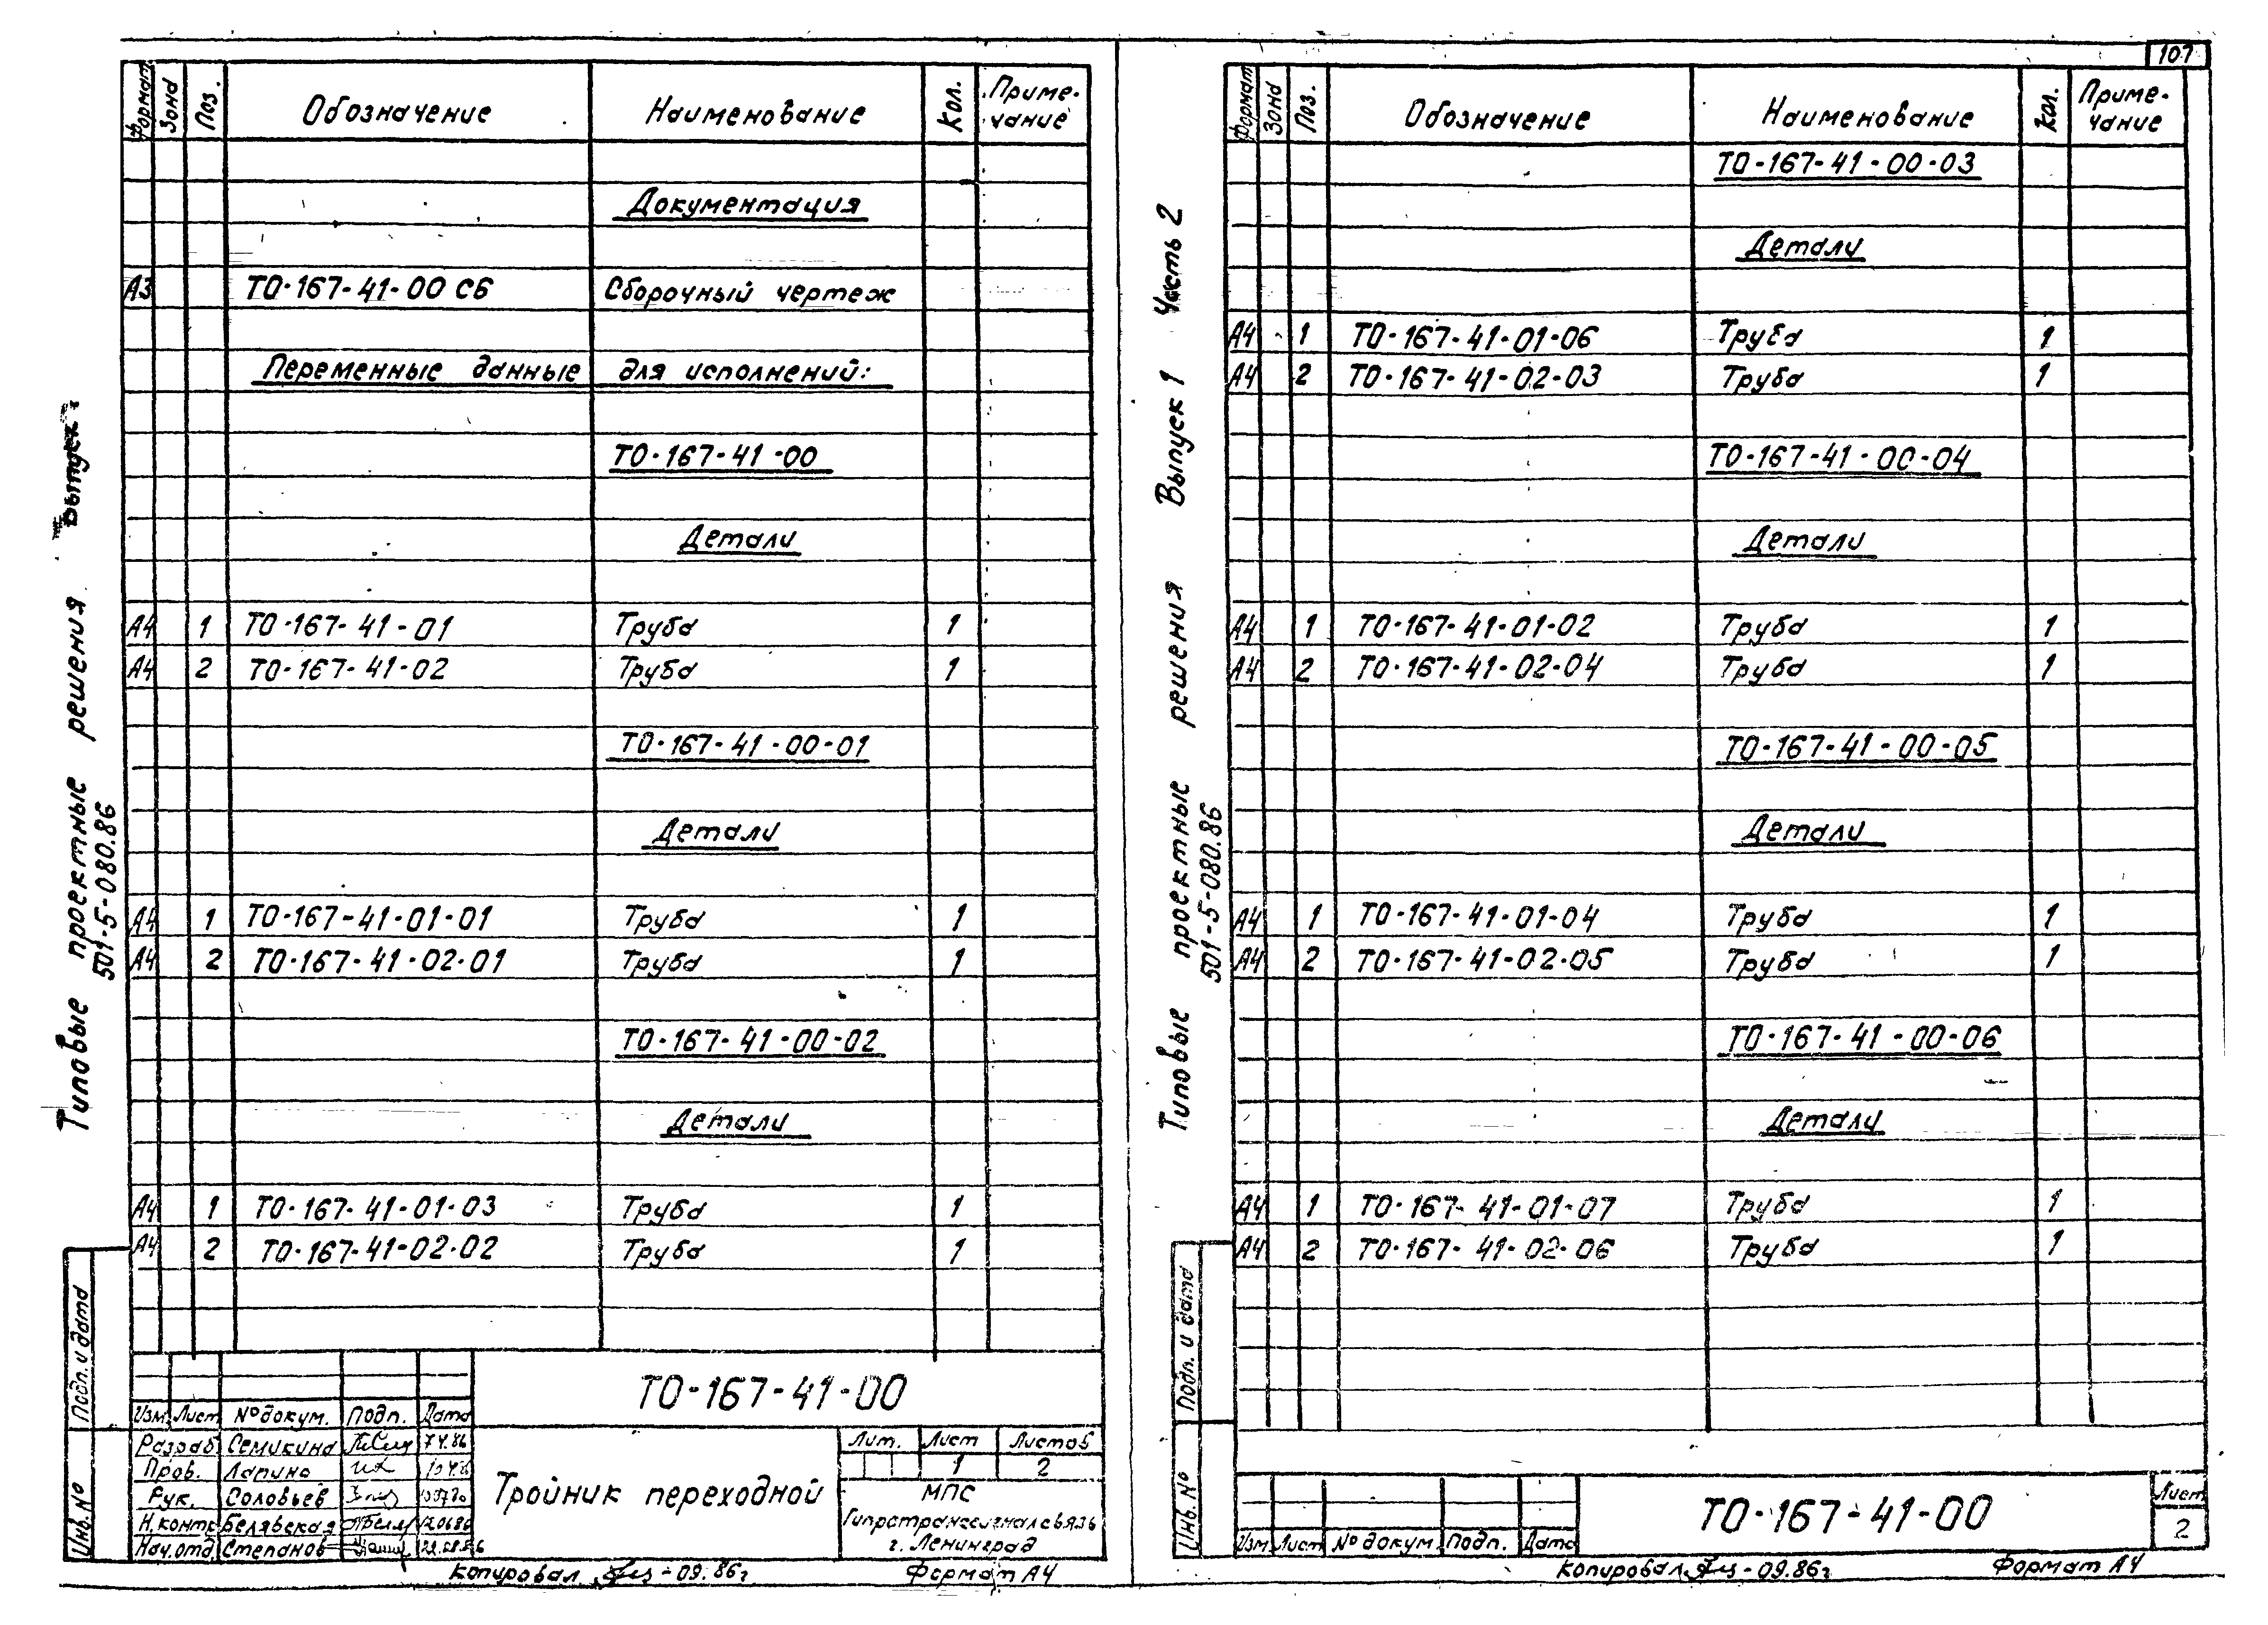 Формат Зона Поз. Обозначение Наименование Кол. Приме-
чание
Документация
А3 ТО-167-41-00 СБ Сборочный чертеж
Переменные данные для исполнений:
ТО-167-41-00
Детали
А4 1 ТО-167-41-01 Труба 1
А4 2 ТО-167-41-02 Труба 1
ТО-167-41-00-01
Детали
А4 1 ТО-167-41-01-01 Труба 1
А4 2 ТО-167-41-02-01 Труба 1
ТО-167-41-00-02
Детали
А4 1 ТО-167-41-01-03 Труба 1
А4 2 ТО-167-41-02-02 Труба 1
Типовые проектные решения Выпуск
501-5-080.86
Подп. и дата
Инв. №
ТО-167-41-00
Изм Лист № докум. Подп. Дата
Разраб Семикина
Пров. Лапина
Рук. Соловьев
Н.контр Белявская
Нач.отд Степанов
Тройник переходной
Лит. Лист Листов
1 2
МПС
Гипротранссигналсвязь
г. Ленинград
Копировал - 09.86г Формат А4
107
Формат Зона Поз. Обозначение Наименование Кол. Приме-
чание
ТО-167-41-00-03
Детали
А4 1 ТО-167-41-01-06 Труба 1
А4 2 ТО-167-41-02-03 Труба 1
ТО-167-41-00-04
Детали
А4 1 ТО-167-41-01-02 Труба 1
А4 2 ТО-167-41-02-04 Труба 1
ТО-167-41-00-05
Детали
А4 1 ТО-167-41-01-04 Труба 1
А4 2 ТО-167-41-02-05 Труба 1
ТО-167-41-00-06
Детали
А4 1 ТО-167-41-01-07 Труба 1
А4 2 ТО-167-41-02-06 Труба 1
Типовые проектные решения Выпуск 1 Часть 2
501-5-080.86
Подп. и дата
Инв. №
Изм Лист № докум. Подп. Дата
ТО-167-41-00
Лист
2
Копировал - 09.86г Формат А4